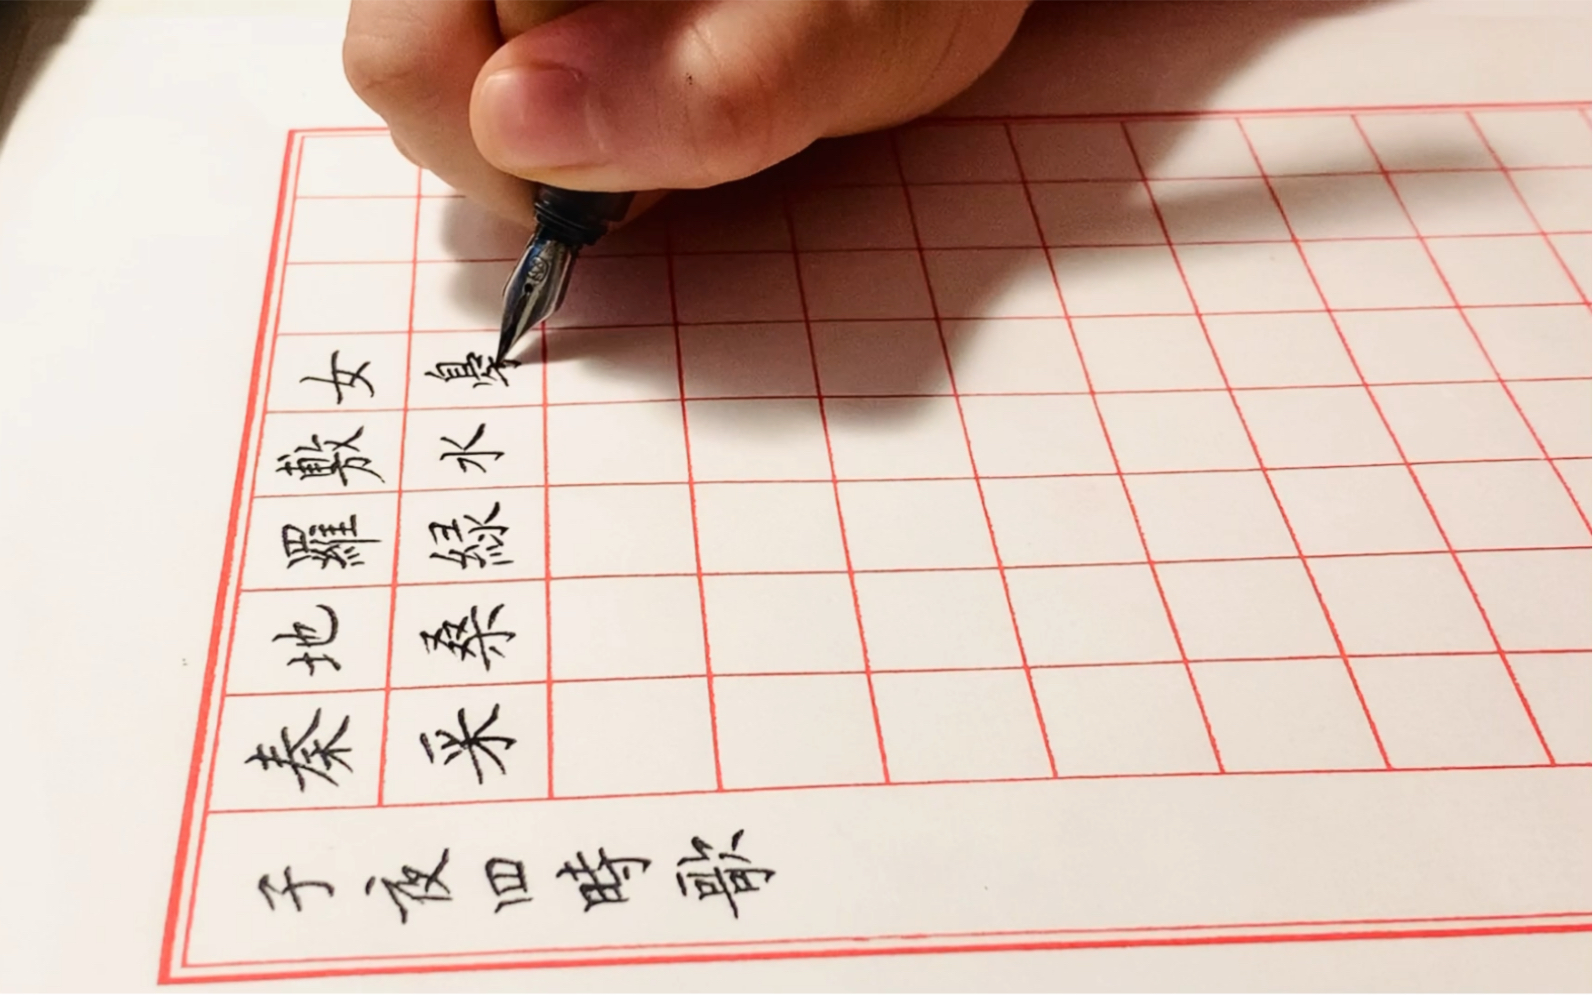 子夜四時歌
秦地羅敷女
采桑綠水